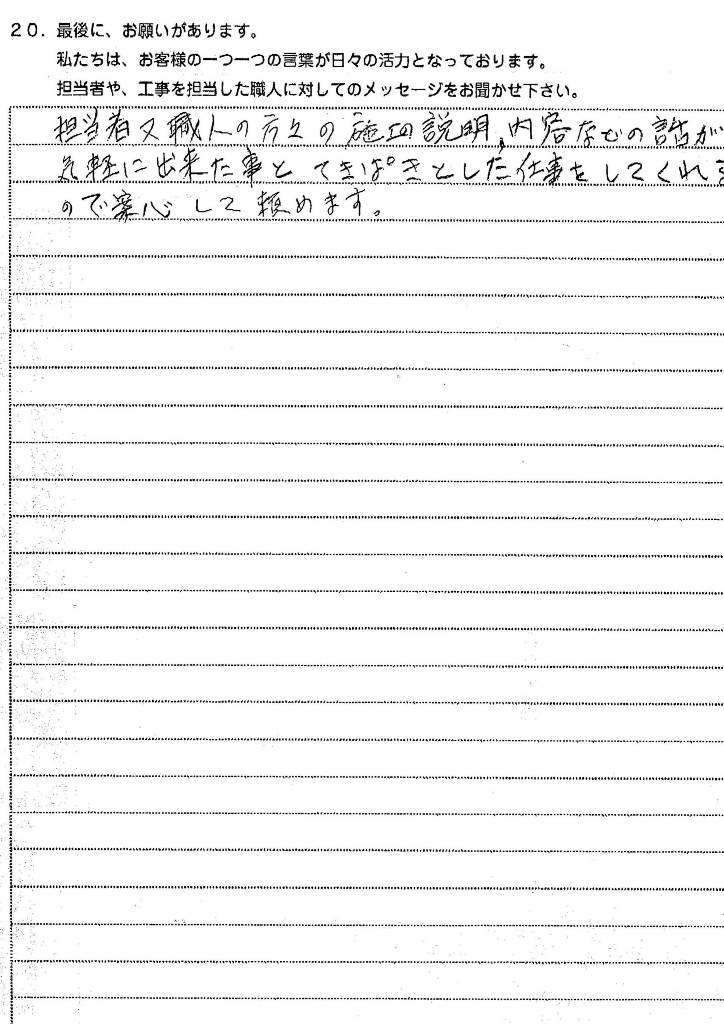 20．最後に、お願いがあります。
私たちは、お客様の一つ一つの言葉が日々の活力となっております。
担当者や、工事を担当した職人に対してのメッセージをお聞かせ下さい。
担当者又職人の方々の施工説明,内容などの話が
気軽に出来た事と てきぱきとした仕事をしてくれる
ので安心して頼めます。